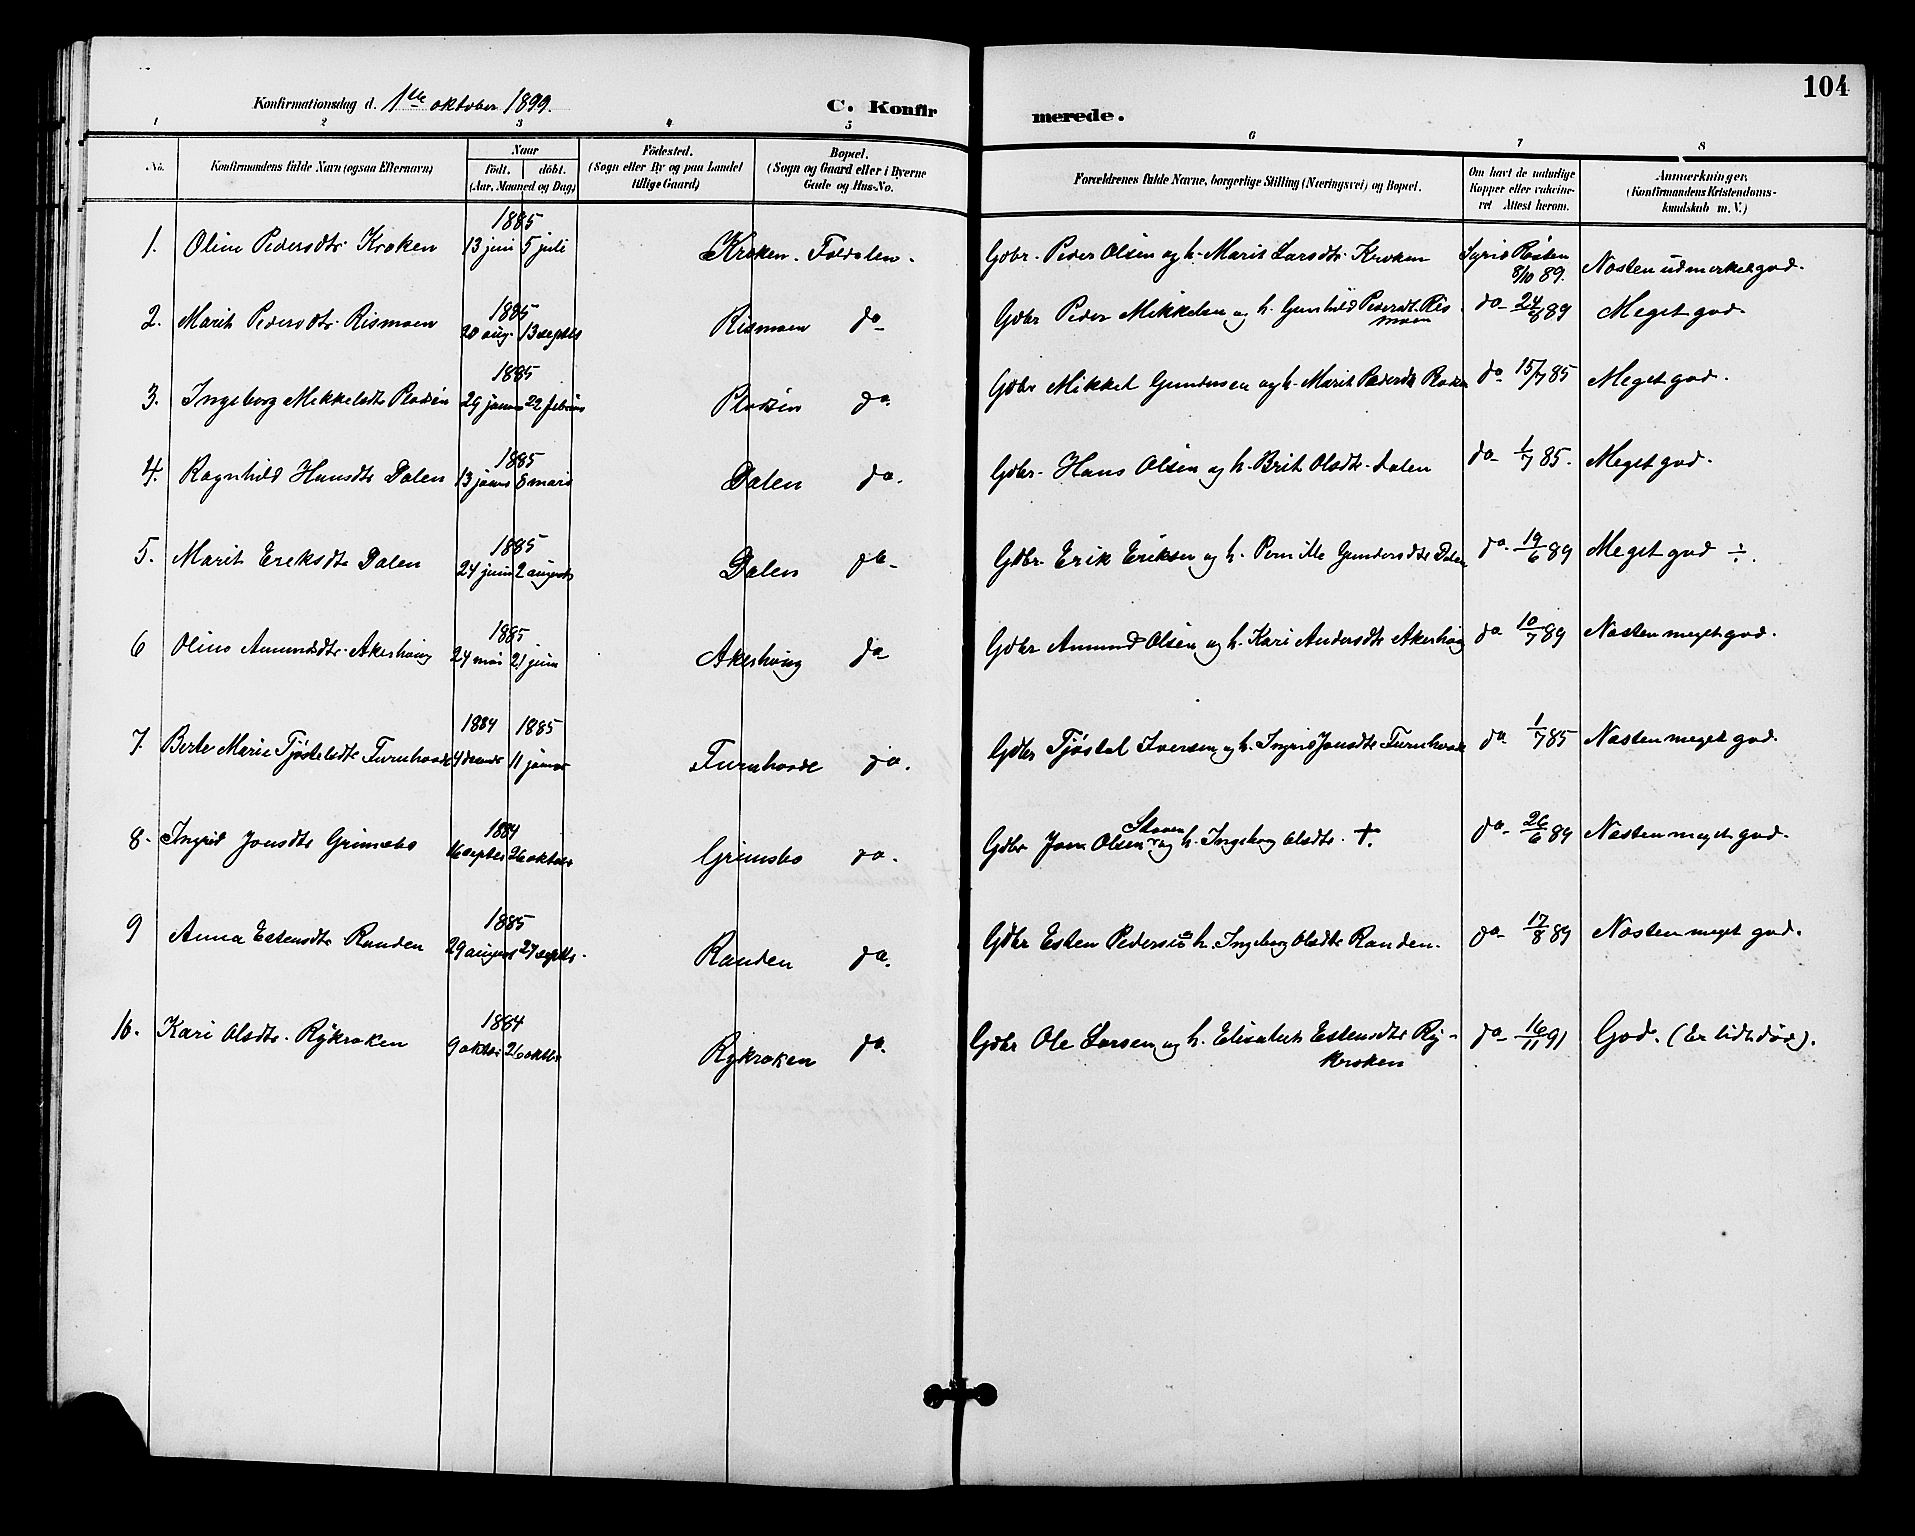 104
Konfirmationsdag d. 1ste oktober 1899.
C. Konfirmerede.
1 2 3 4 5 6 7 8
No.
Konfirmandens fulde Navn (ogsaa Efternavn)
Naar
Födt. döbt.
(Aar, Maaned og Dag)
Födested.
(Sogn eller By og paa Landet
tillige Gaard)
Bopæl.
(Sogn og Gaard eller i Byerne
Gade og Hus-No.
Forældrenes fulde Navne, borgerlige Stilling (Næringsvei) og Bopæl.
Om havt de naturlige
Kopper eller vakcine-
ret Attest herom.
Anmærkninger.
(Konfirmandens Kristendoms-
kundskab m. V.)
1885
1. Oline Pedersdtr. Kroken 13 juni 5 juli Kroken. Foldalen. Gdbr. Peder Olsen og h. Marit Larsdtr. Kroken 8/10 89. Næsten udmerket god.
1885
2. Marit Pedersdtr. Rismoen 20 aug. 13 septbr Rismoen do Gdbr Peder Mikkelsen og h. Gunhild Pedersdt. Ris
moen do 24/8 89 Meget god.
1885
3. Ingeborg Mikkelsdtr 29 januar 22 februar do. Gdbr Mikkel Gundersen og h. Marit Pedersdtr do 15/7 85 Meget god.
1885
4. Ragnhild Hansdtr Dalen 13 januar 8 mars Dalen do. Gdbr. Hans Olsen og h. Brit Olsdtr. Dalen do 1/7 85. Meget god.
1885
5. Marit Eriksdtr Dalen 24 juni 2 august Dalen do Gdbr. Erik Eriksen og h. Pernille Gundersdtr Dalen do. 19/6 89 Meget god ÷.
1885
6 Oline Amundsdtr. Akeshaug 24 mai 21 juni Akeshaug do Gdbr Amund Olsen og h. Kari Andersdtr Akeshaug do 10/7 89 Næsten meget god.
1884 1885
7. Berte Marie Tjøstelsdtr Furuhovde 4 decmbr 11 januar Furuhovde do. Gdbr Tjøstel Iversen og h. Ingrid Jonsdtr Furuhovde do. 1/7 85 Næsten meget god.
1884
8. Ingrid Jonsdtr Grimsbo 16 septbr 26 oktober Grimsbo do. Gdbr Jon Olsen og h. Ingeborg Olsdtr. †. do 26/6 89 Næsten meget god.
1885
9 Anna Estensdtr Randen 29 august 27 septbr. Randen do. Gdbr Esten Pedersen h. Ingeborg Olsdtr Randen. do 17/8 89 Næsten meget god.
1884
10. Kari Olsdtr. Rykroken 9 oktbr 26 oktbr Rykroken do. Gdbr Ole Larsen og h. Elisabeth Estensdtr Ry-
kroken do 16/11 91 God. (Er lidt døv).